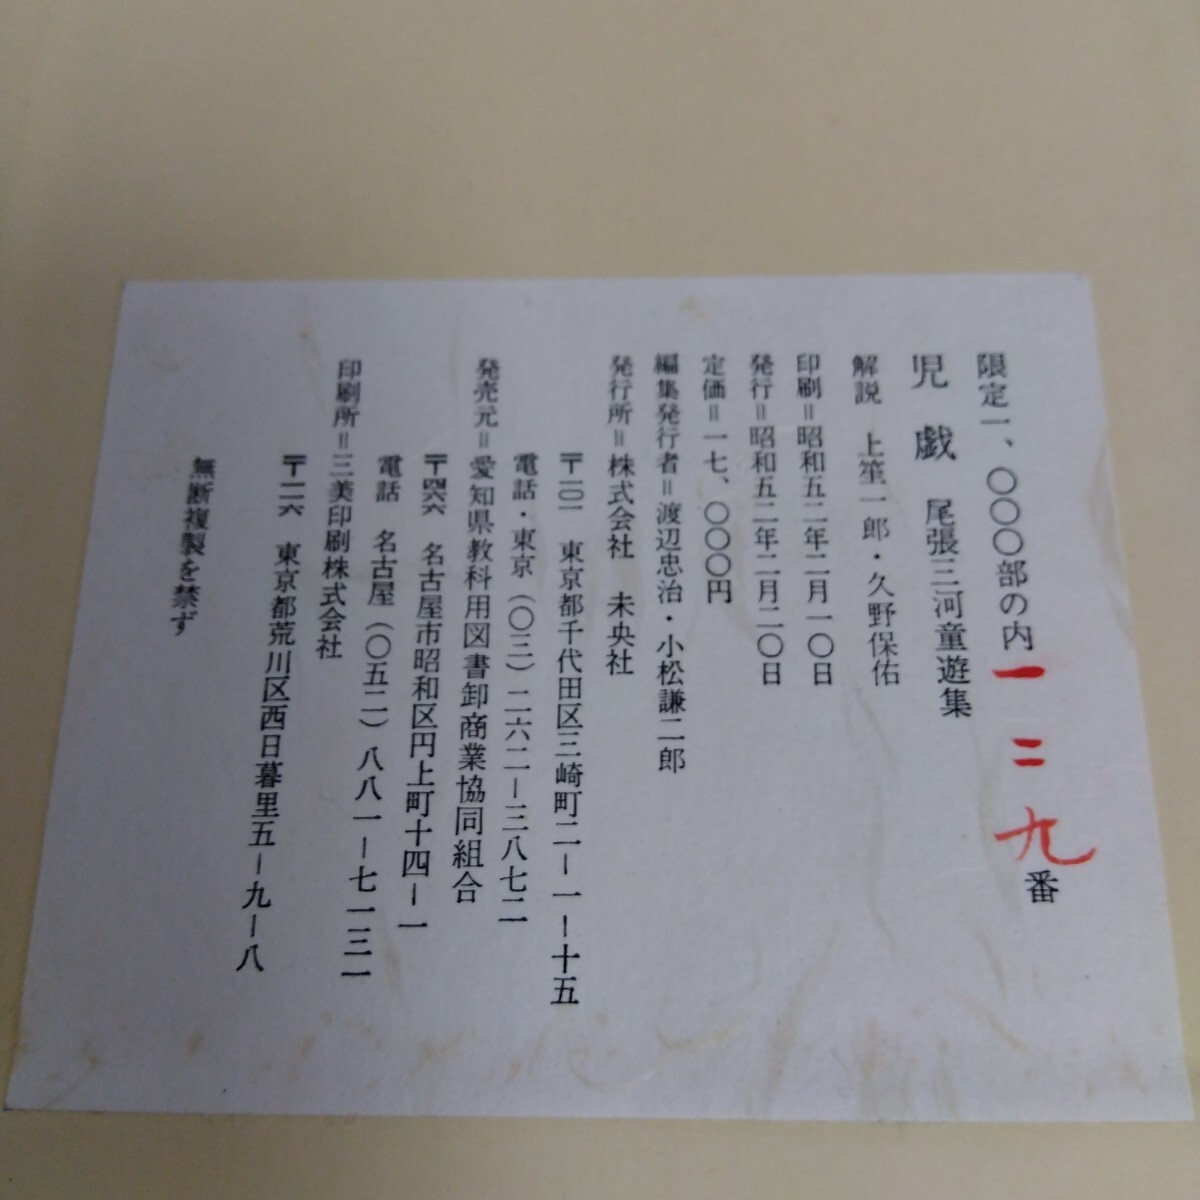 限定一、〇〇〇部の内一二九番
児戯 尾張三河童遊集
解説 上笙一郎・久野保佑
印刷＝昭和五二年二月一〇日
発行＝昭和五二年二月二〇日
定価＝一七、〇〇〇円
編集発行者＝渡辺忠治・小松謙二郎
発行所＝株式会社 未央社
〒一〇一 東京都千代田区三崎町二ー一ー十五
電話・東京（〇三）二六二ー三八七二
発売元＝愛知県教科用図書卸商業協同組合
〒四六六 名古屋市昭和区円上町十四ー一
電話 名古屋（〇五二）八八一ー七一三一
印刷所＝三美印刷株式会社
〒一一六 東京都荒川区西日暮里五ー九ー八
無断複製を禁ず